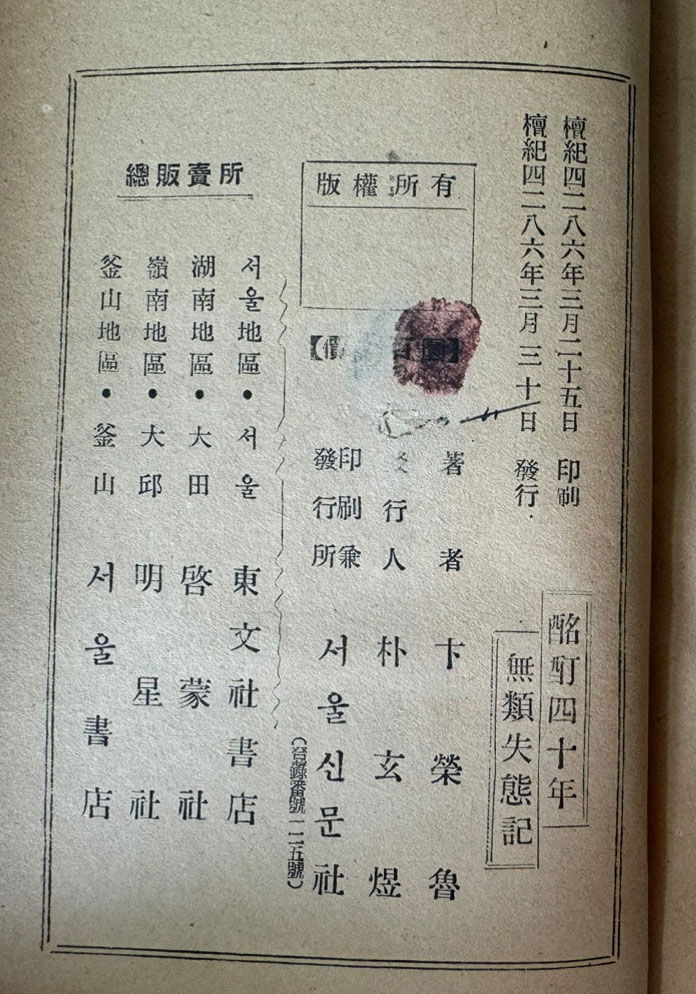 檀紀四二八六年三月二十五日 印刷
檀紀四二八六年三月三十日 發行.
酩酊四十年
無類失態記
版權所有
【價 圓】
著者 卞榮魯
行人 朴玄煜
印刷兼
發行所 서울신문社
(台錄番號一二五號)
總販賣所
서울地區 • 서울 東文社書店
湖南地區 • 大田 啓蒙社
嶺南地區 • 大邱 明星社
釜山地區 • 釜山 서울書店